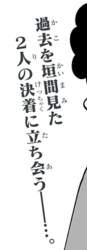 過去を垣間見た
2人の決着に立ち会う――…。